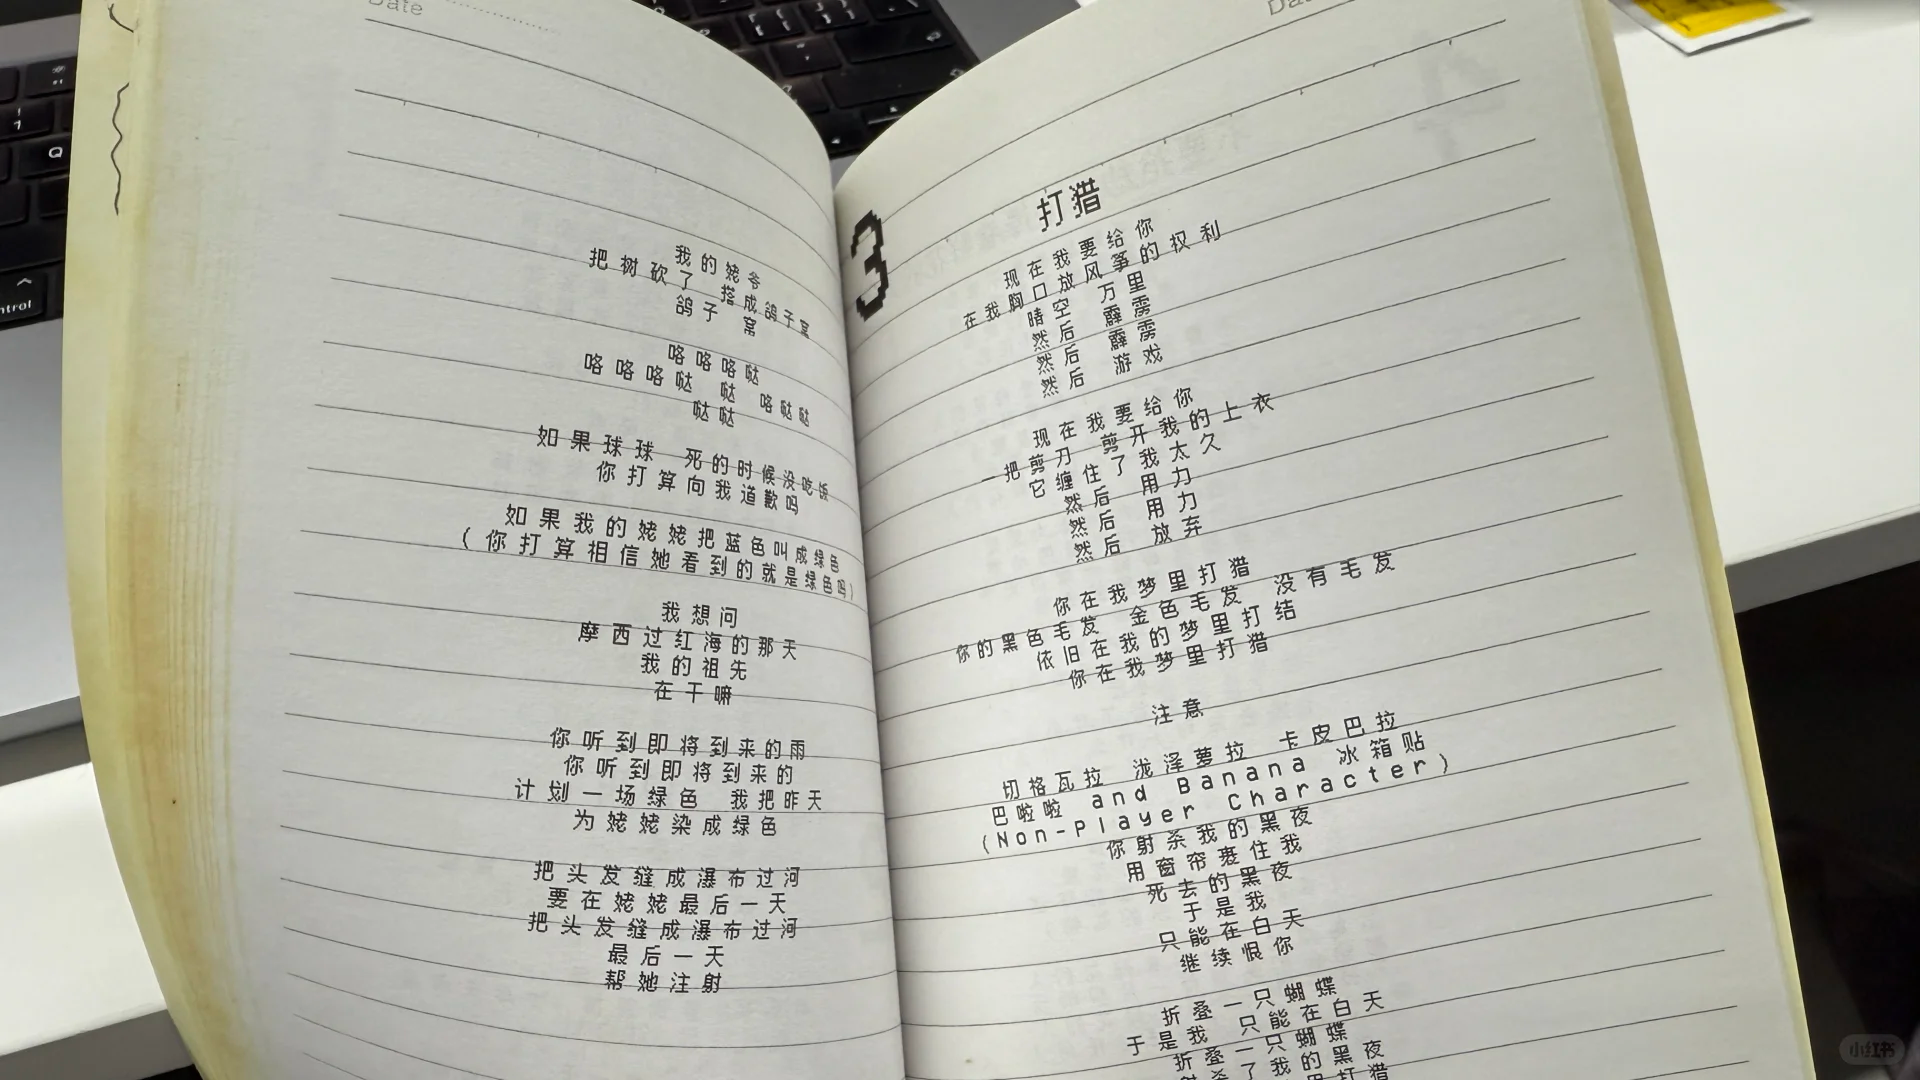 Date
我的姥爷
把树砍了 搭成鸽子窝
鸽子 窝
咯咯咯哒
咯咯咯哒 哒 咯哒哒
哒哒
如果球球 死的时候没吃饭
你打算向我道歉吗
如果我的姥姥把蓝色叫成绿色
(你打算相信她看到的就是绿色吗)
我想问
摩西过红海的那天
我的祖先
在干嘛
你听到即将到来的雨
你听到即将到来的
计划一场绿色 我把昨天
为姥姥染成绿色
把头发缝成瀑布过河
要在姥姥最后一天
把头发缝成瀑布过河
最后一天
帮她注射
3
打猎
现在我要给你
在我胸口放风筝的权利
晴空 万里
然后 霹雳
然后 霹雳
然后 游戏
现在我要给你
一把剪刀 剪开我的上衣
它缠住了我太久
然后 用力
然后 用力
然后 放弃
你在我梦里打猎
你的黑色毛发 金色毛发 没有毛发
依旧在我的梦里打结
你在我梦里打猎
注意
切格瓦拉 泷泽萝拉 卡皮巴拉
巴啦啦 and Banana 冰箱贴
(Non-Player Character)
你射杀我的黑夜
用窗帘裹住我
死去的黑夜
于是我
只能在白天
继续恨你
折叠一只蝴蝶
于是我 只能在白天
折叠一只蝴蝶
射杀了我的黑夜
打猎
Q
control
小红书